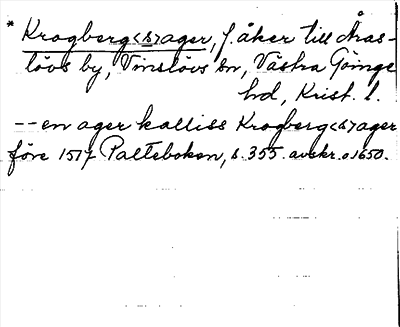 * Krogberg<s>ager, f. åker till Åras-
lövs by, Vinslövs sn, Västra Göinge
hd, Krist. l.
-- en ager kalliss Krogberg<s>ager
före 1517 Palteboken, s. 355. avskr. o 1650.